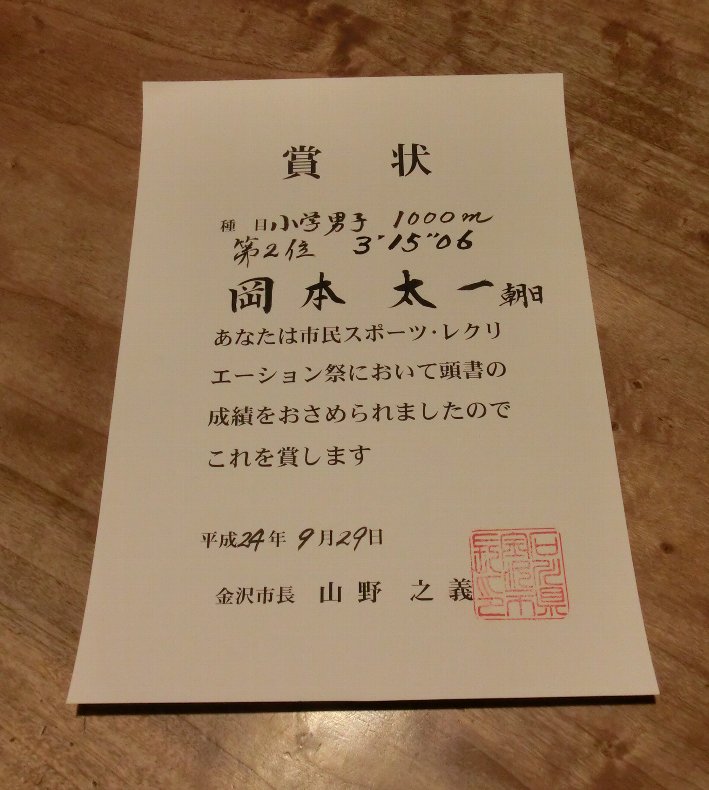 賞状
種目 小学男子 1000m
第2位 3'15"06
岡本太一 朝日
あなたは市民スポーツ・レクリ
エーション祭において頭書の
成績をおさめられましたので
これを賞します
平成24年9月29日
金沢市長 山野之義